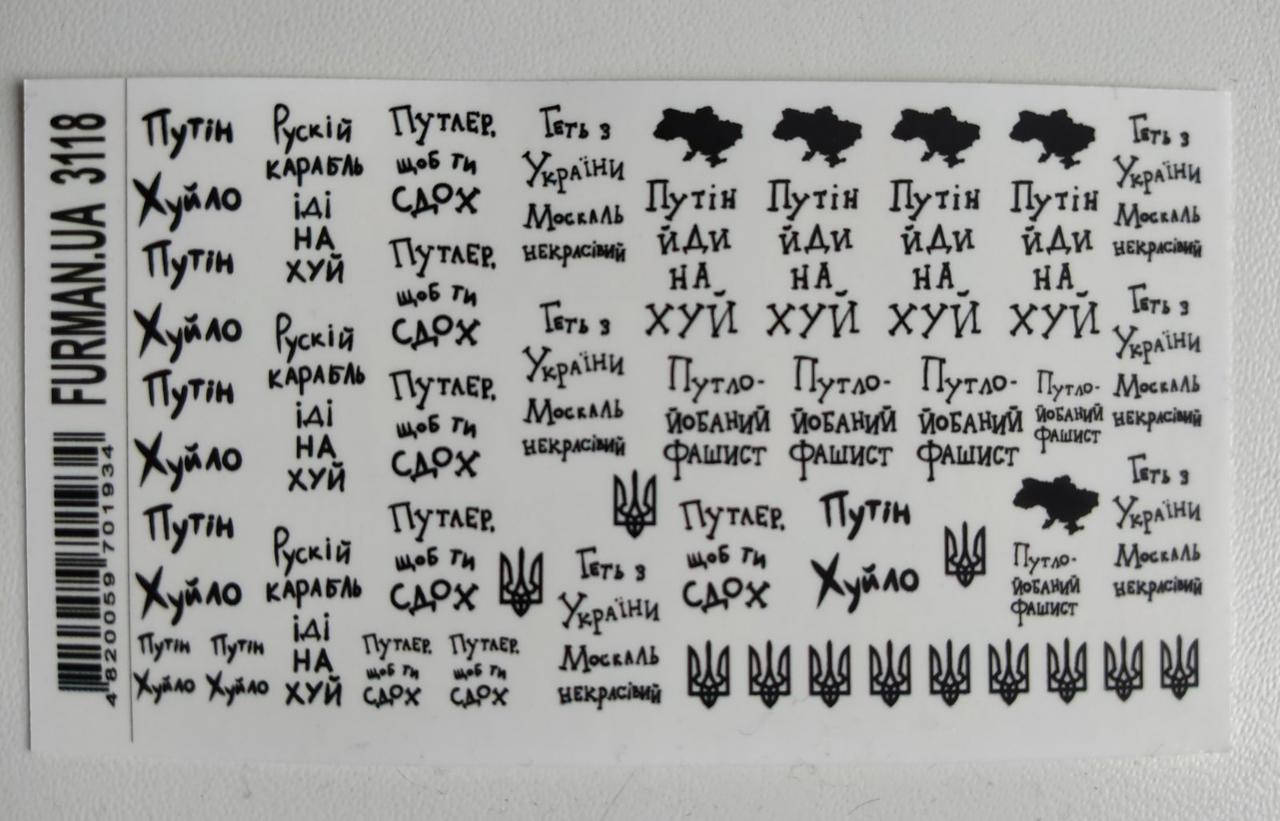 FURMAN.UA 3118
4820059701934
Путін
Хуйло
Путін
Хуйло
Путін
Хуйло
Путін
Хуйло
Путін
Хуйло
Путін
Хуйло
Рускій
карабль
іді
на
хуй
Рускій
карабль
іді
на
хуй
Рускій
карабль
іді
на
хуй
Путлер,
щоб ти
сдох
Путлер,
щоб ти
сдох
Путлер,
щоб ти
сдох
Путлер,
щоб ти
сдох
Путлер,
щоб ти
сдох
Путлер,
щоб ти
сдох
Геть з
України
Москаль
некрасівий
Геть з
України
Москаль
некрасівий
Геть з
України
Москаль
некрасівий
Путін
йди
на
хуй
Путін
йди
на
хуй
Путін
йди
на
хуй
Путін
йди
на
хуй
Путло-
йобаний
фашист
Путло-
йобаний
фашист
Путло-
йобаний
фашист
Путло-
йобаний
фашист
Путлер,
щоб ти
сдох
Путін
Хуйло
Путло-
йобаний
фашист
Геть з
України
Москаль
некрасівий
Геть з
України
Москаль
некрасівий
Геть з
України
Москаль
некрасівий